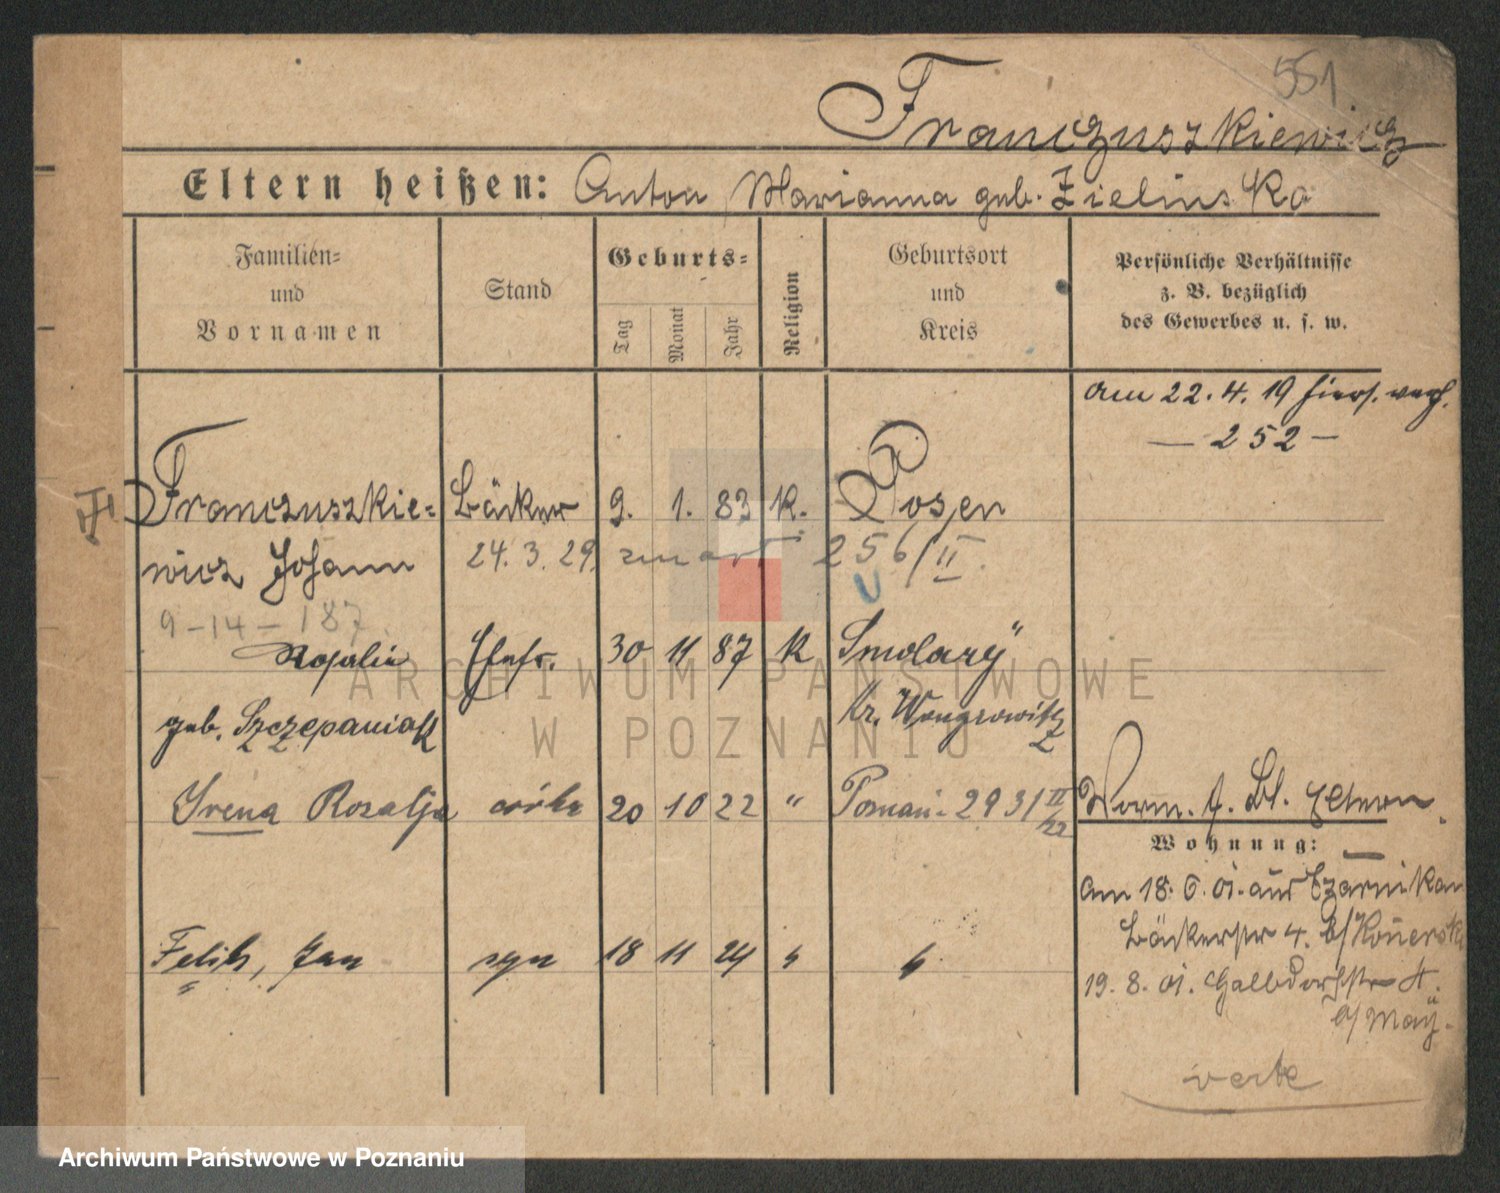 551
Franczuszkiewicz
Eltern heißen: Anton, Marianna geb. Zielinska
Familien- und Vornamen
Stand
Geburts-
Tag
Monat
Jahr
Religion
Geburtsort und Kreis
Persönliche Verhältnisse z. B. bezüglich des Gewerbes u. s. w.
am 22. 4. 19 hiers. verh.
— 252 —
Franczuszkie- Bäcker 9. 1. 83 K. Posen
wicz Johann 24. 3. 29 zmarł 256/II
9-14-187
Rosalie Ehefr. 30 11 87 K Smolary
geb. Szczepaniak Kr. Wongrowitz
Irena Rozalja córka 20 10 22 " Poznań 2931 II/22
Worm. f. Bl. Eltern
Wohnung:
am 18. 6. 01. aus Czarnikau
Bäckerstr 4. b/
Feliks, Jan syn 18 11 24 " "
19. 8. 01. Halbdorfstr
b/ May.
verte
ARCHIWUM PAŃSTWOWE
W POZNANIU
Archiwum Państwowe w Poznaniu